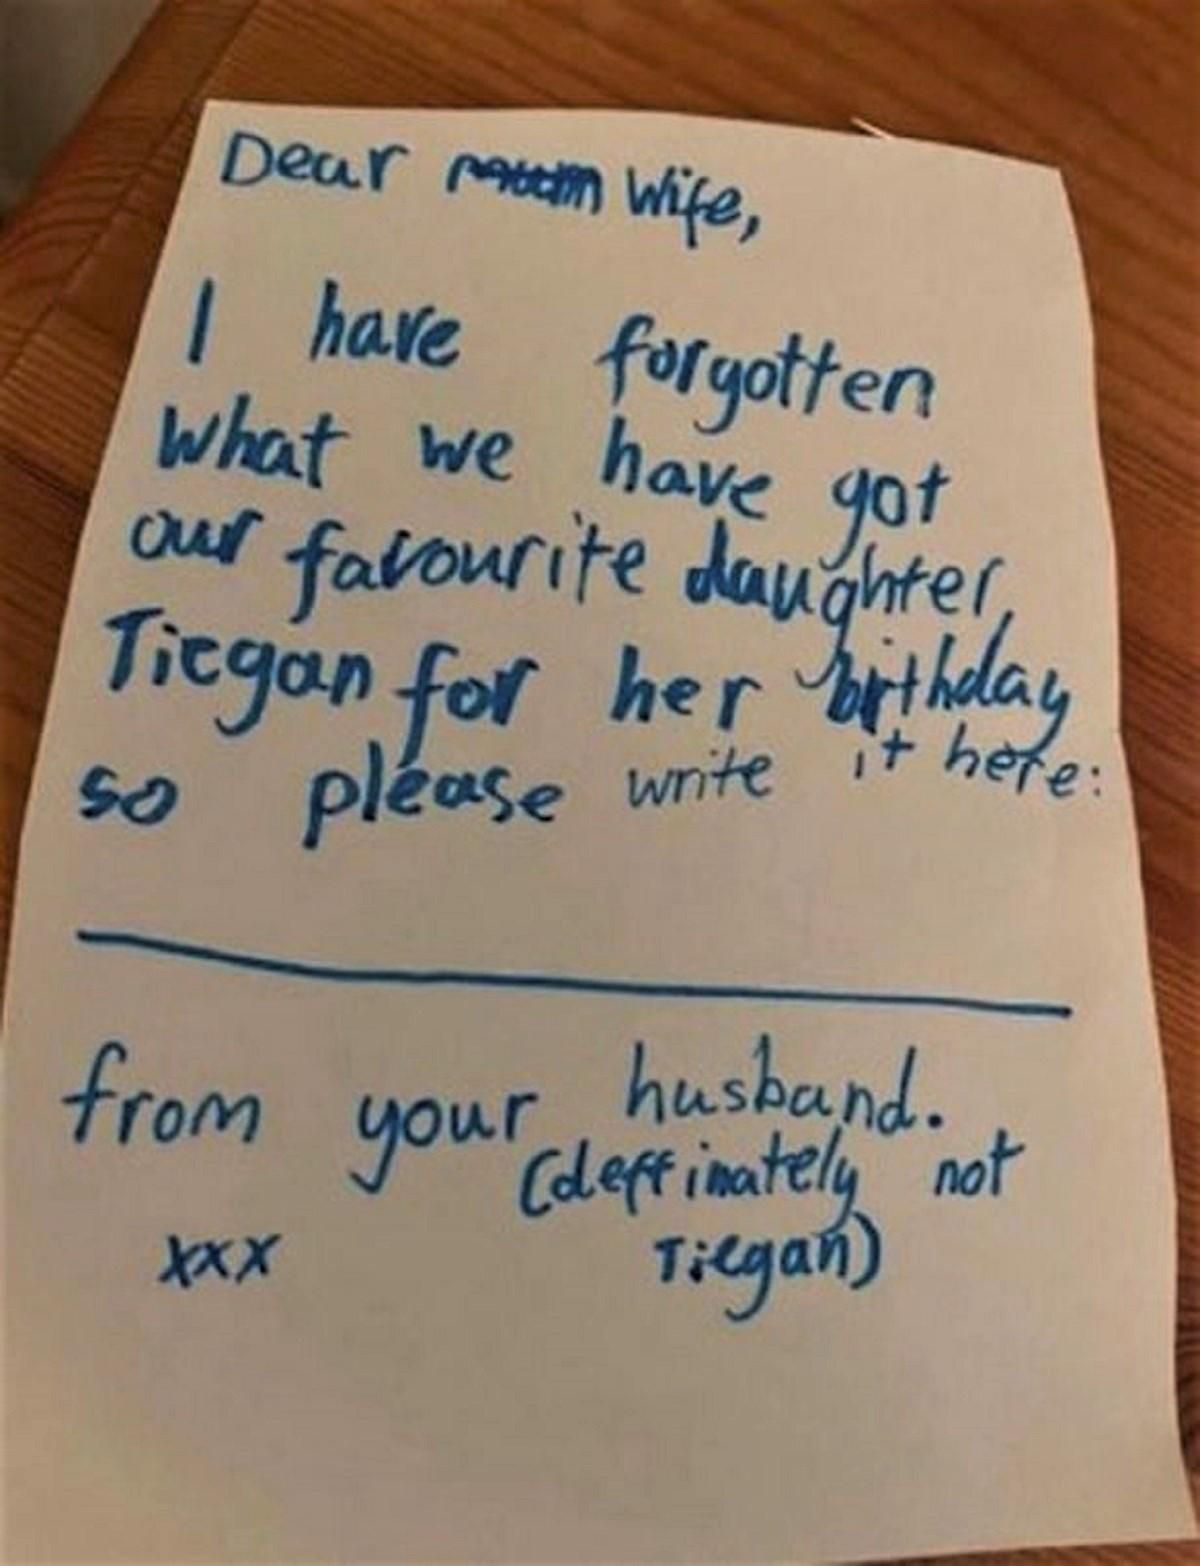 Dear Wife,
I have forgotten
what we have got
our favourite daughter,
Tiegan for her birthday
so please write it here:
from your husband.
(deffinately not
xxx Tiegan)